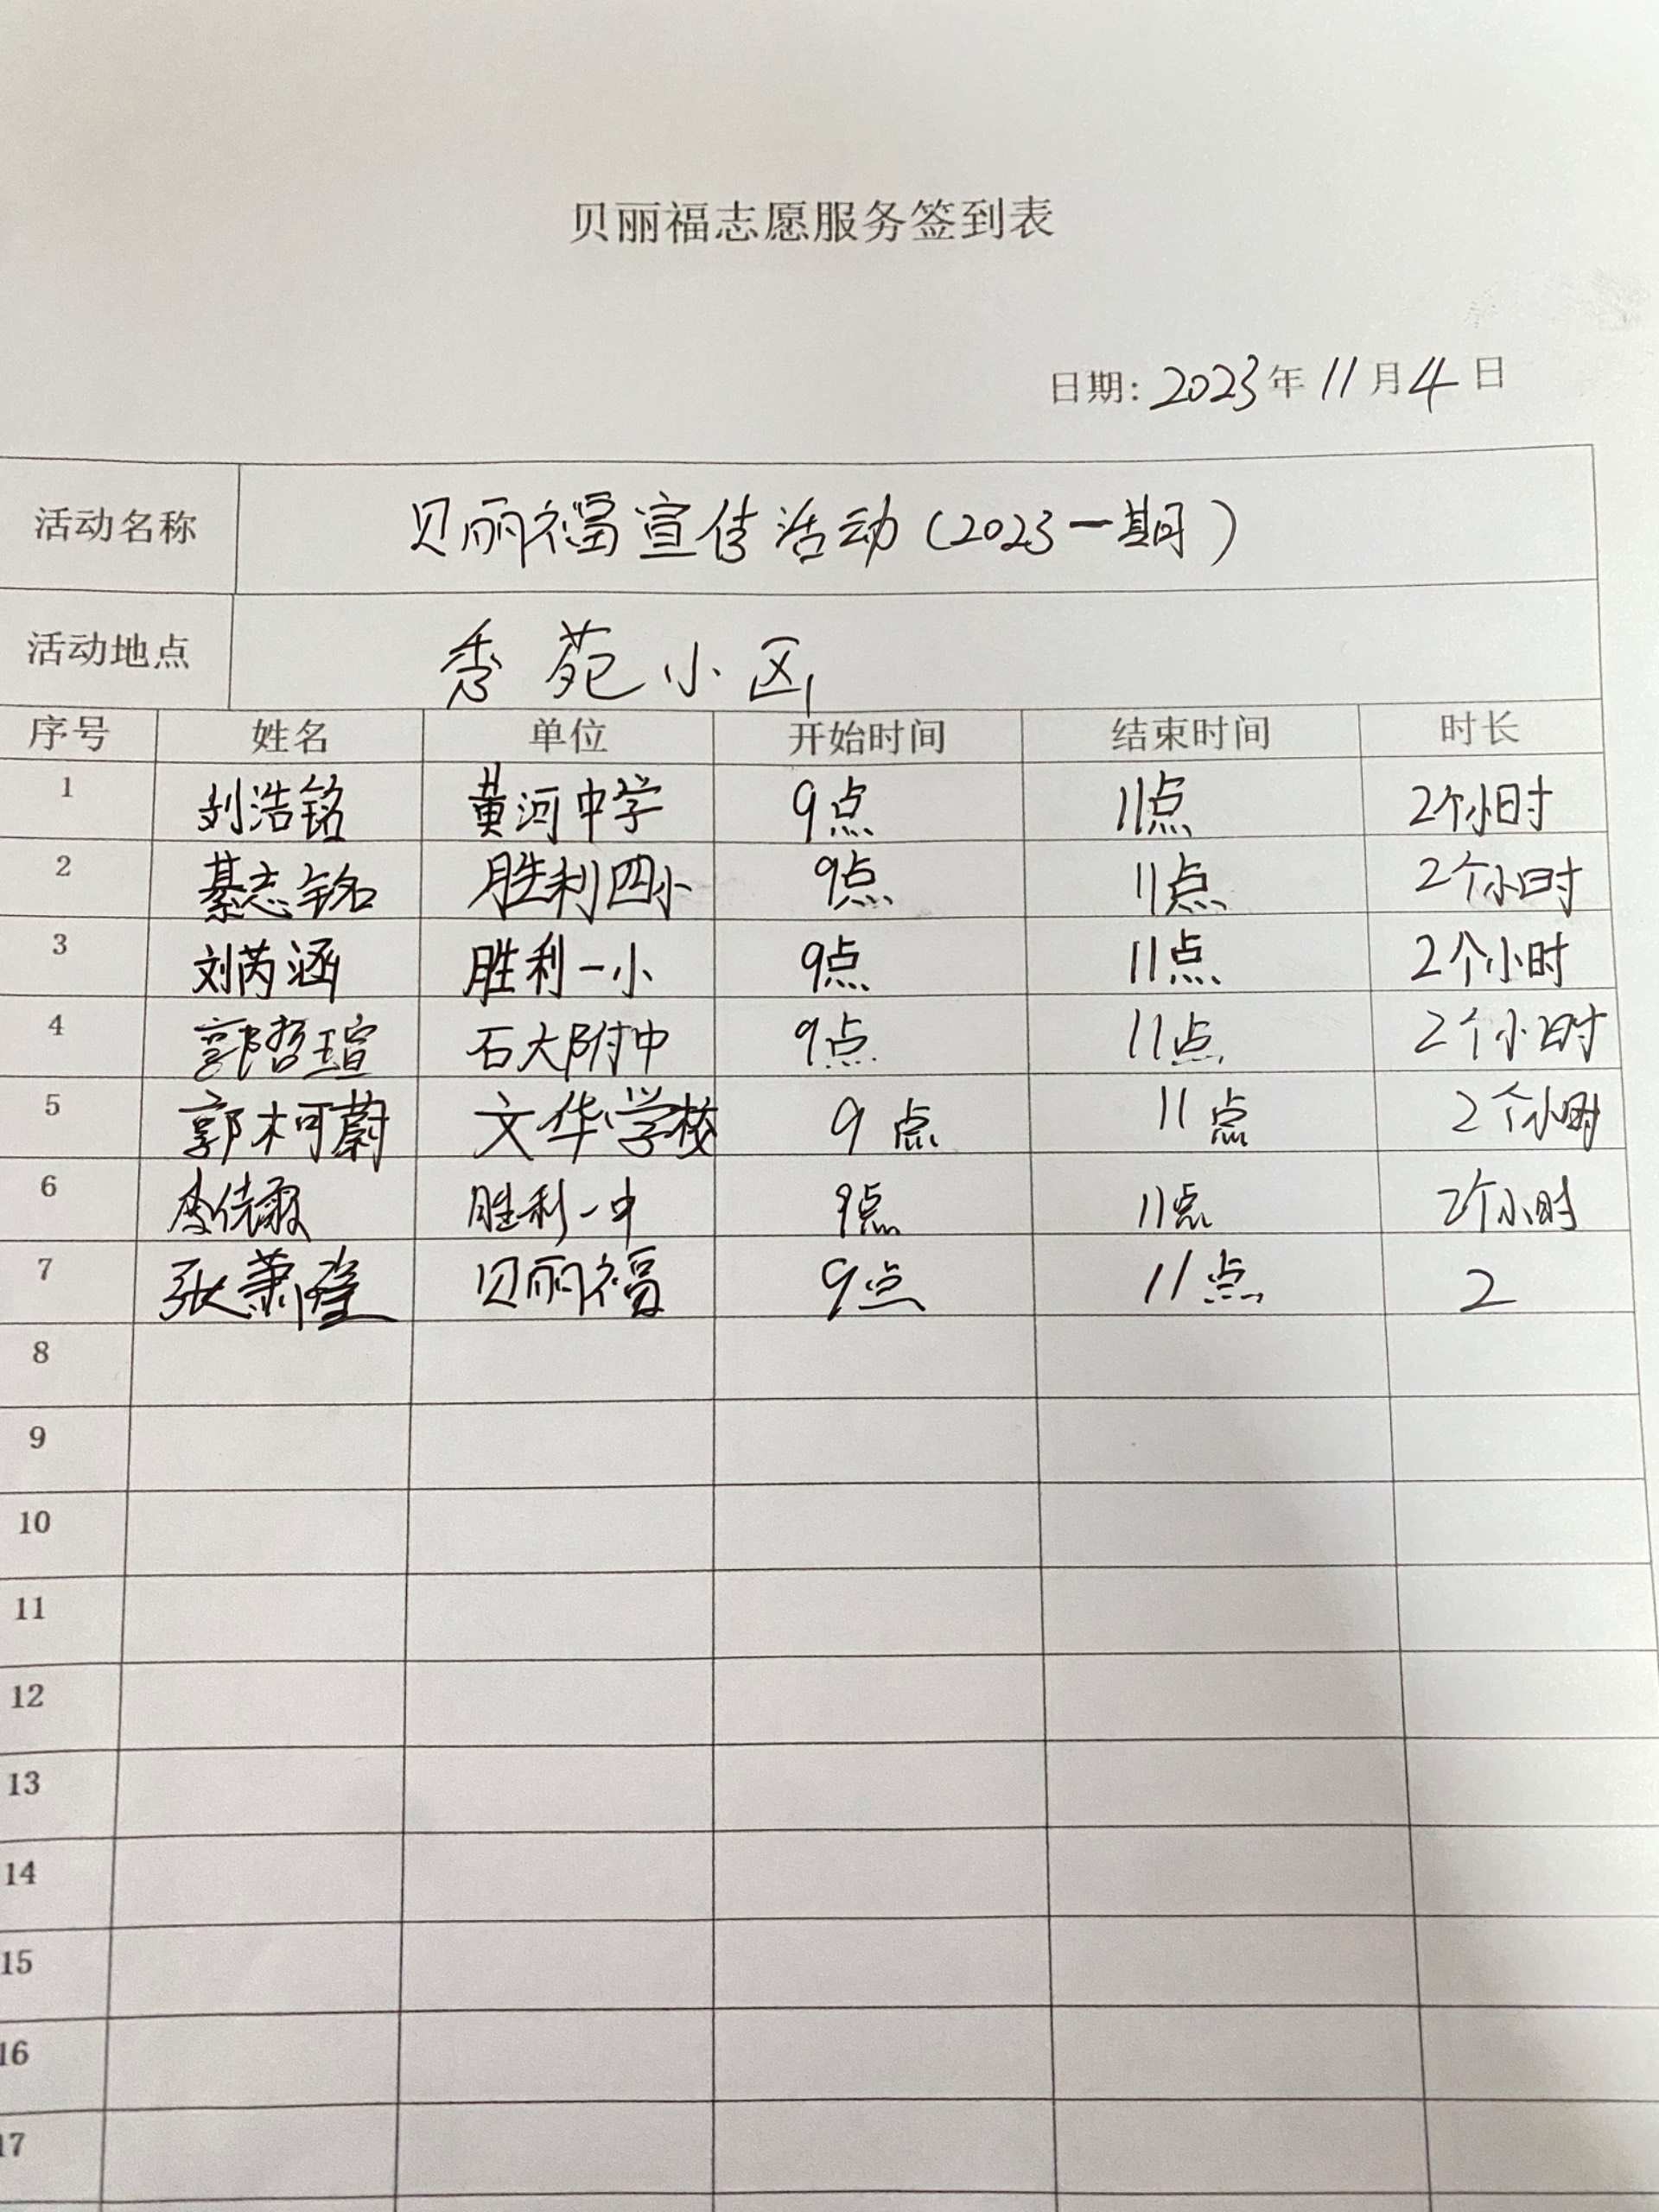 贝丽福志愿服务签到表
日期：2023年11月4日
活动名称 贝丽福宣传活动（2023一期）
活动地点 秀苑小区
序号 姓名 单位 开始时间 结束时间 时长
1 刘浩铭 黄河中学 9点 11点 2个小时
2 綦志铭 胜利四小 9点 11点 2个小时
3 刘芮涵 胜利一小 9点 11点 2个小时
4 郭哲瑄 石大附中 9点 11点 2个小时
5 郭柯蔚 文华学校 9点 11点 2个小时
6 胜利一中 9点 11点 2个小时
7 张 贝丽福 9点 11点 2
8
9
10
11
12
13
14
15
16
17